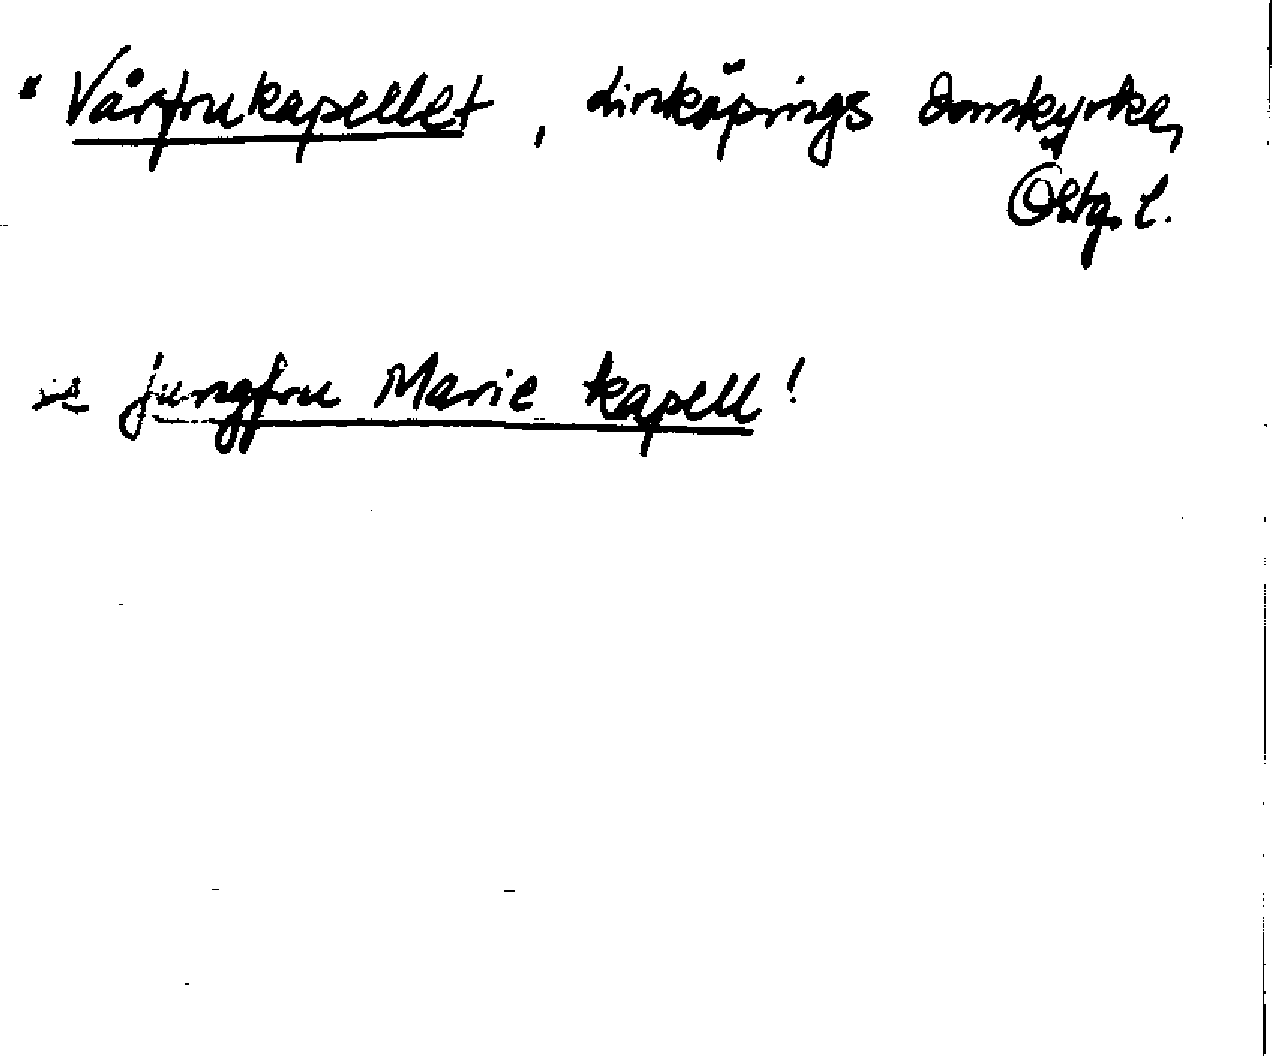 " Vårfrukapellet, Linköpings Domkyrka,
Östg. l.
se Jungfru Marie kapell!